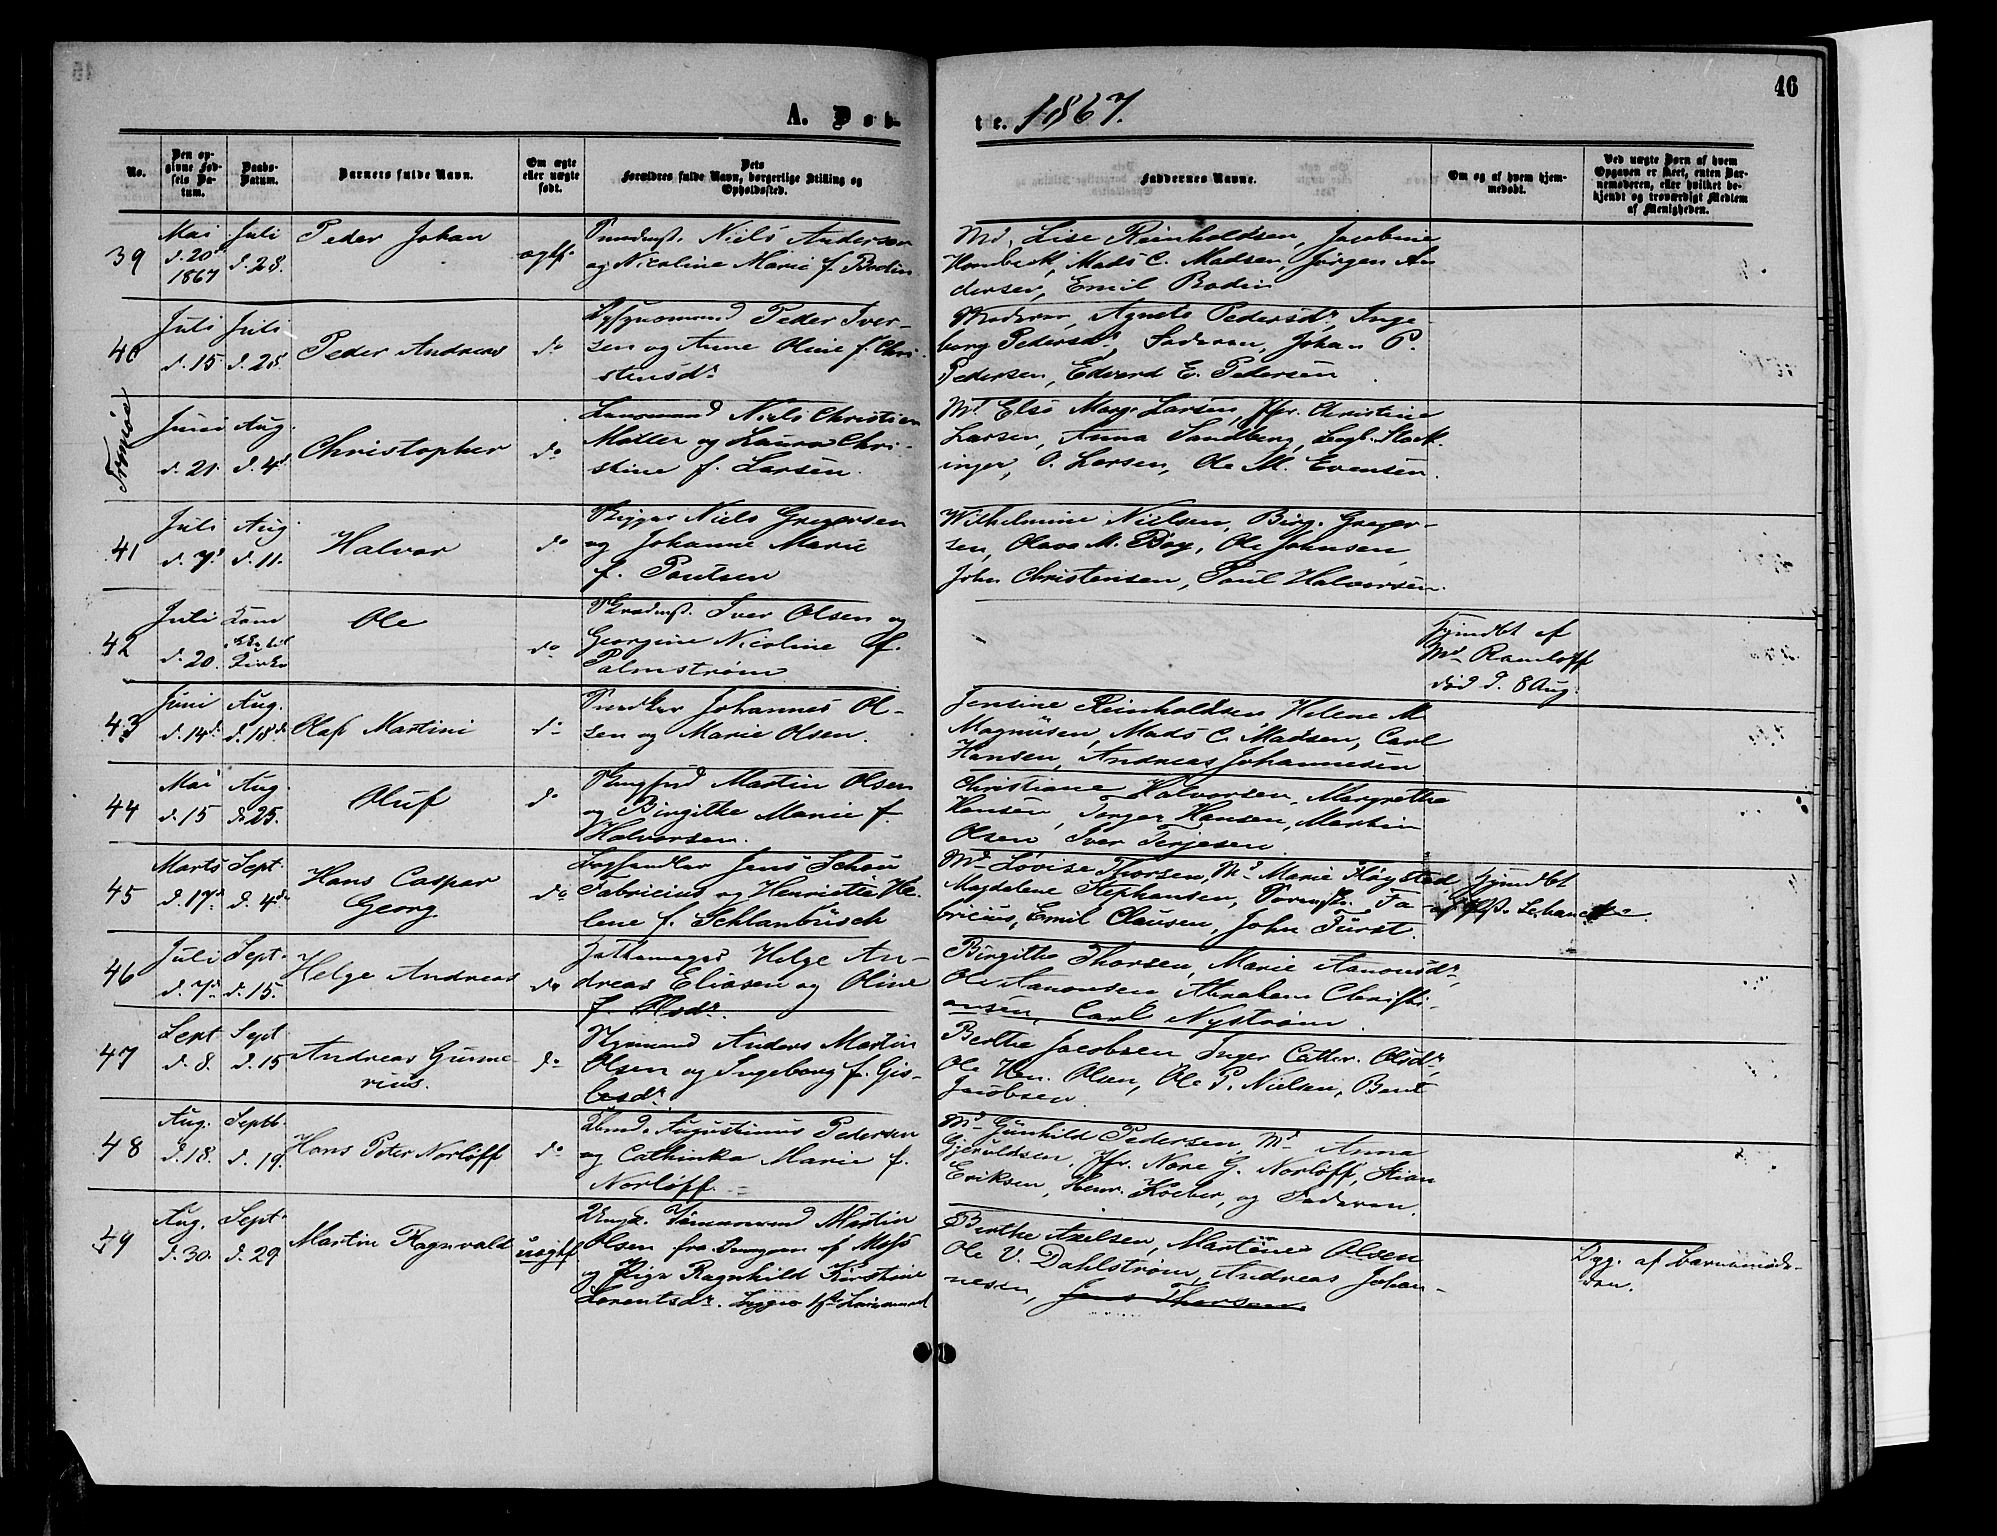 46
A. Døb-
te. 1867.
No.
Den op-
givne Fød-
sels Da-
tum.
Daabs-
Datum.
Barnets fulde Navn.
Om ægte
eller uægte
født.
Dets
Forældres fulde Navn, borgerlige Stilling og
Opholdssted.
Faddernes Navne.
Om og af hvem hjem-
medøbt.
Ved uægte Børn af hvem
Opgaven er skeet, enten Bar-
nemoderen, eller hvilket be-
kjendt og troværdigt Medlem
af Menigheden.
39
Mai
d. 20
1867
Juli
d. 28.
Peder Johan
ægte
Niels Andersen
og Nicoline Marie f. Bodin
Md. Lise Reinholdsen, Jacobine
Hornbeck, Mads C. Madsen, Jørgen An
dersen, Emil Bodin
40
Juli
d. 15
Juli
d. 28.
Peder Andreas
do
Peder Iver-
sen og Anne Oline f. Chri-
stensdr
Moderen, Agnete Pedersdr, Inge-
borg Pedersdr, Faderen, Johan P.
Pedersen, Edvard E. Pedersen
Tromøe
Juni
d. 21.
Aug.
d. 4d
Christopher
do
Niels Christian
Møller og Laura Chri-
stine f. Larsen.
Md Else Marg. Larsen, Jfr. Christine
Larsen, Anna Sandberg, Engl. Stack-
inger, O. Larsen, Ole M. Evensen
41
Juli
d. 7d
Aug.
d. 11.
Halvor
do
Rigger Niels Gregersen
og Johanne Marie
f. Poulsen
Wilhelmine Nielsen, Birg. Greger-
sen, Olava M. Boy, Ole Johnsen,
John Christensen, Poul Halvorsen.
42
Juli
d. 20.
Kom
ikke til
Kirke
Ole
do
Iver Olsen og
Georgine Nicoline f.
Palmstrøm
hjmdbt af
Md Ramløff
død d. 8 Aug.
43
Juni
d. 14d
Aug.
d. 18de
Olaf Martini
do
Snedker Johannes Ol-
sen og Marie Olsen.
Jensine Reinholdsen, Helene M
Magnusen, Mads C. Madsen, Carl
Hansen, Andreas Johannesen
44
Mai
d. 15
Aug.
d. 25.
Oluf
do
Martin Olsen
og Birgithe Marie f.
Halvorsen.
Christiane Halvorsen, Margrethe
Hansen, Torger Hansen, Martin
Olsen, Iver Terjesen
45
Marts
d. 17d
Sept.
d. 4de
Hans Caspar
Georg
do
Jens Schou
Fabricius og Henriette He-
lene f. Schlanbusch
Md Lovise Thorsen, Md Marie Høysted,
Magdalene Stephansen, Fa-
bricius, Emil Clausen, John Furst.
hjmdbt
46
Juli
d. 7d
Sept.
d. 15.
Helge Andreas
do
Helge An-
dreas Eliasen og Oline
f. Olsdr.
Birgithe Thorsen, Marie Aanonsdr,
Ole Aanonsen, Abraham Christi-
ansen, Carl Nystrøm.
47
Sept
d. 8.
Sept
d. 15
Andreas Gunne-
rius.
do
Anders Martin
Olsen og Ingeborg f. Gis-
lesdr.
Berthe Jacobsen, Inger Cathr. Olsdr,
Ole Hen. Olsen, Ole P. Nielsen, Bent
Jacobsen.
48
Aug.
d. 18.
Septb.
d. 19.
Hans Peter Norløff
do
Augustinus Pedersen
og Cathinka Marie f.
Norløff.
Md Gunhild Pedersen, Md Anna
Gjeruldsen, Jfr. Nore G. Norløff, Stian
Eriksen, Henr. Koeber, og Faderen.
49
Aug.
d. 30.
Sept.
d. 29.
Martin Ragnvald
uægte
Ungk. Tømmermand Martin
Olsen fra af Moss
og Pige Ragnhild Kirstine
Lorentsdr.
Berthe Axelsen, Martine Olsen
Ole V. Dahlstrøm, Andreas Johan-
nesen, Jens Thorsen.
Opg. af barnemode-
ren.